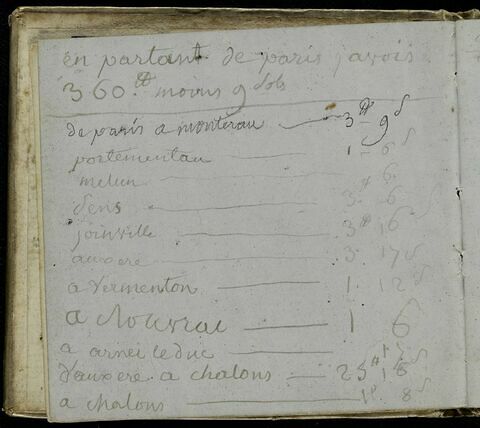 en partant de paris javois
360.tt moins 9 sols
de paris a monterau 3tt 9s
portementau 1 6s
melun 6.
sens 3.tt 6
joinville 3tt 16s
auxere 3. 17s
a vermenton 1. 12s
a rouvrai 1 6
a arnei le duc
d'auxere a chalons 25tt 18s
a chalons 1tt 8s